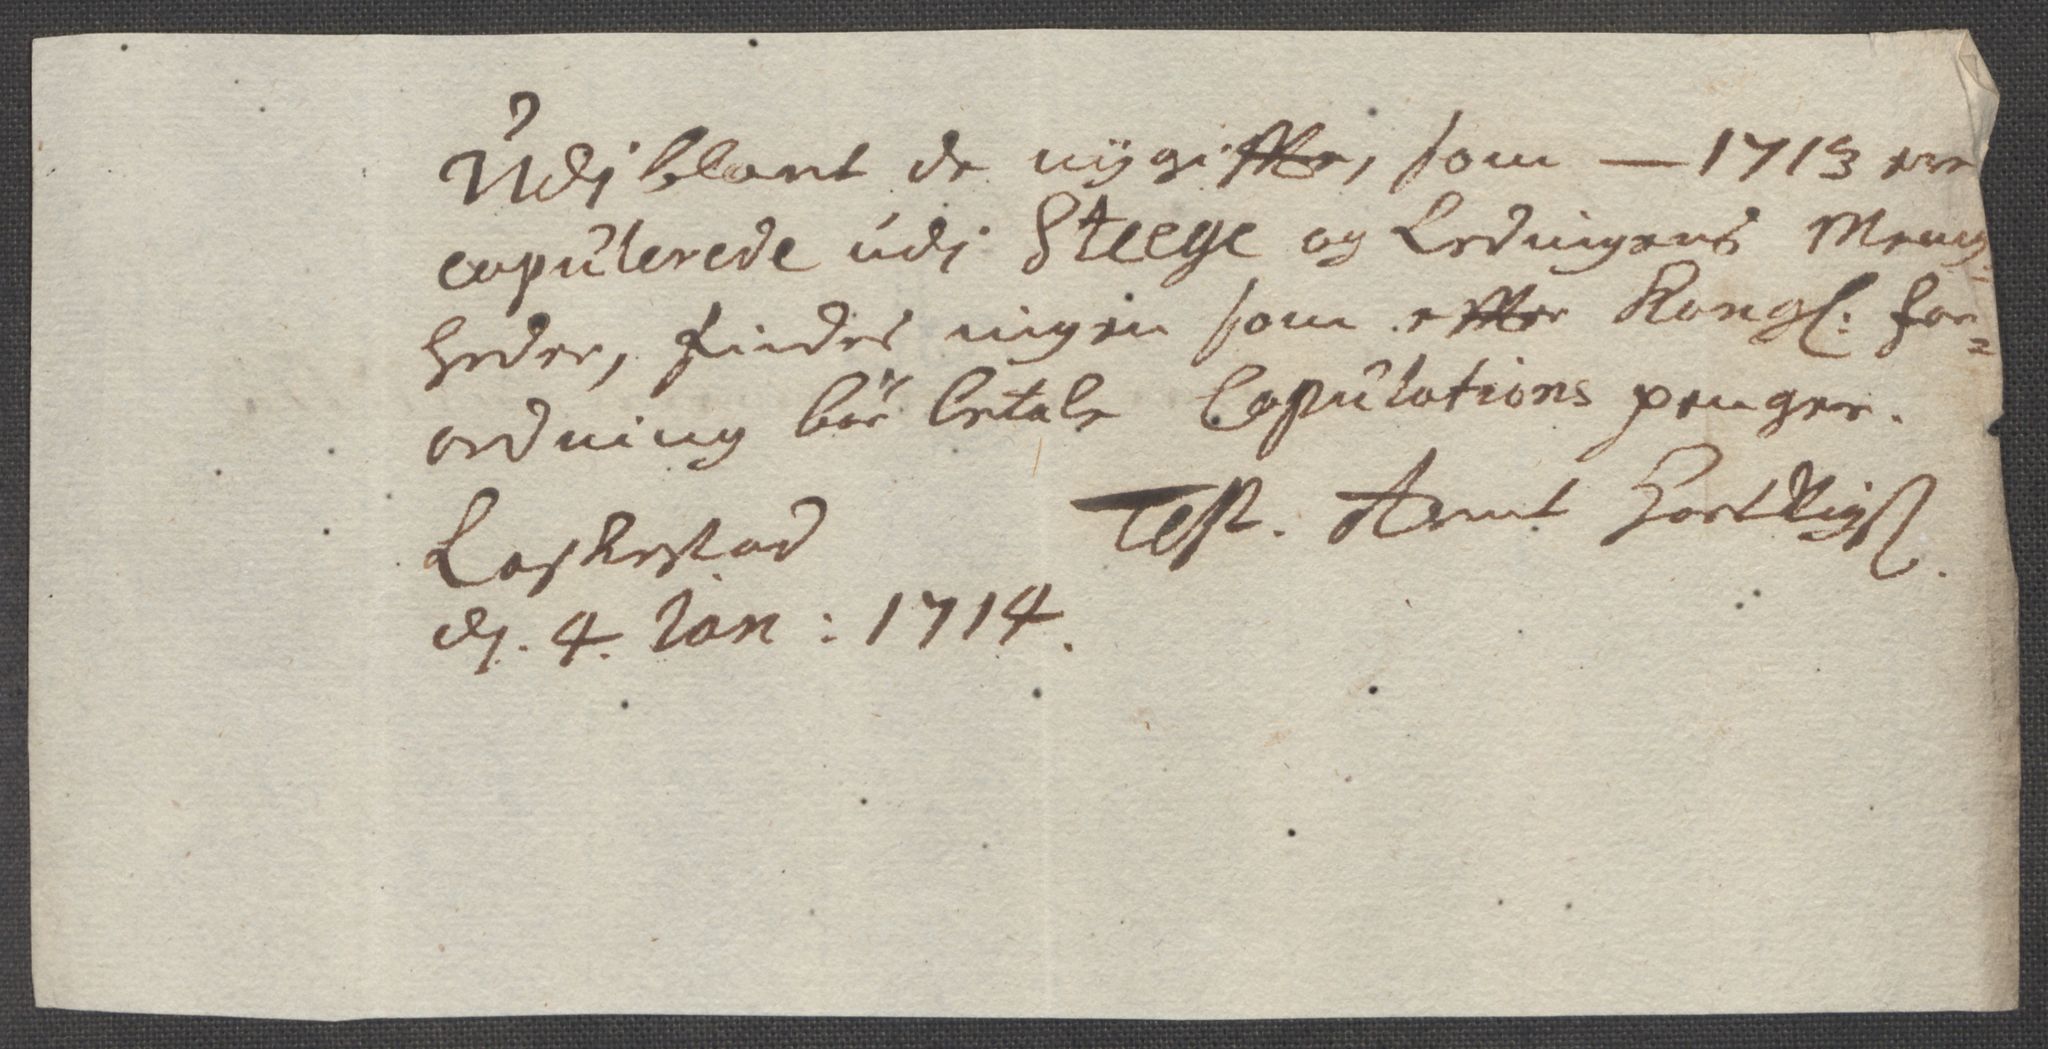 Udj blant de nÿgiffte, som — 1713 ere
copulerede udj Steege og Ledingens Meenig=
heder, findes ingen som effter Kongl: for=
ordning bör betale Copulations penger.
Laskestad Test. Arent Hartvigs
dj. 4. Jan: 1714.